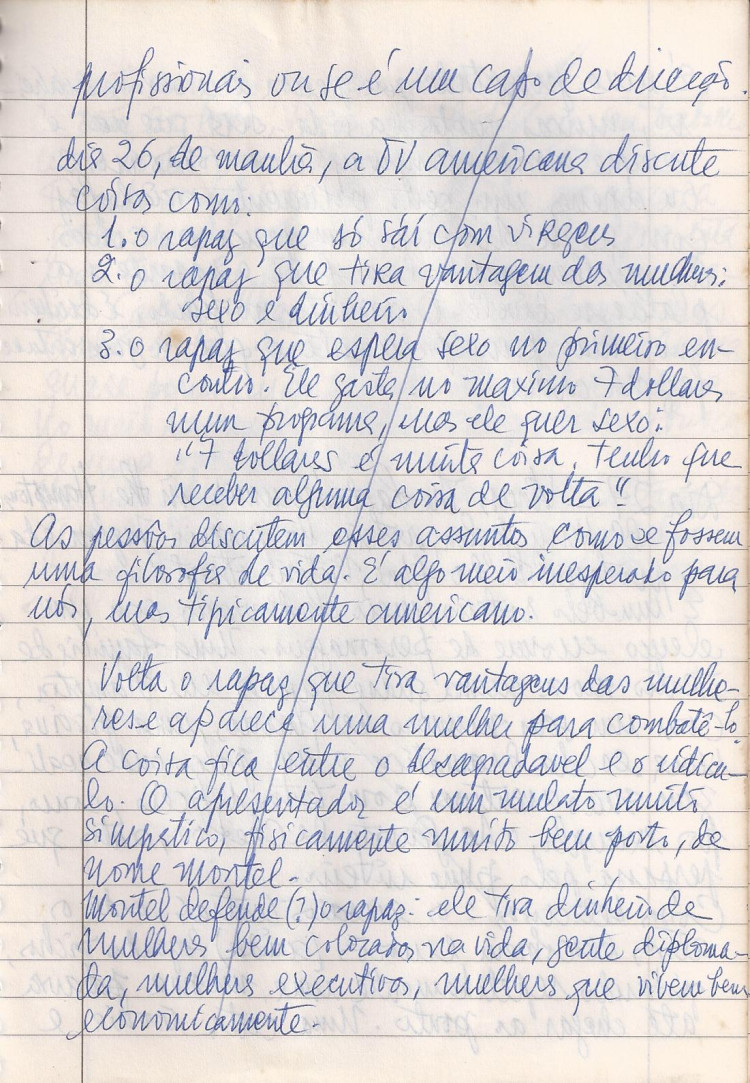 profissionais ou se é um caso de direção.
dia 26, de manhã, a TV americana discute
coisas como:
1. o rapaz que só sai com virgens
2. o rapaz que tira vantagem das mulheres:
sexo e dinheiro
3. o rapaz que espera sexo no primeiro en-
contro. Ele gasta no maximo 7 dollares
num programa, mas ele quer sexo.
"7 dollares é muita coisa. Tenho que
receber alguma coisa de volta".
As pessoas discutem esses assuntos como se fossem
uma filosofia de vida. É algo meio inesperado para
nós, mas tipicamente americano.
Volta o rapaz que tira vantagens das mulhe-
res e aparece uma mulher para combatê-lo.
A coisa fica entre o desagradavel e o ridicu-
lo. O apresentador é um mulato muito
simpatico, fisicamente muito bem posto, de
nome Montel.
Montel defende (?) o rapaz: ele tira dinheiro de
mulheres bem colocadas na vida, gente diploma-
da, mulheres executivas, mulheres que vivem bem
economicamente.